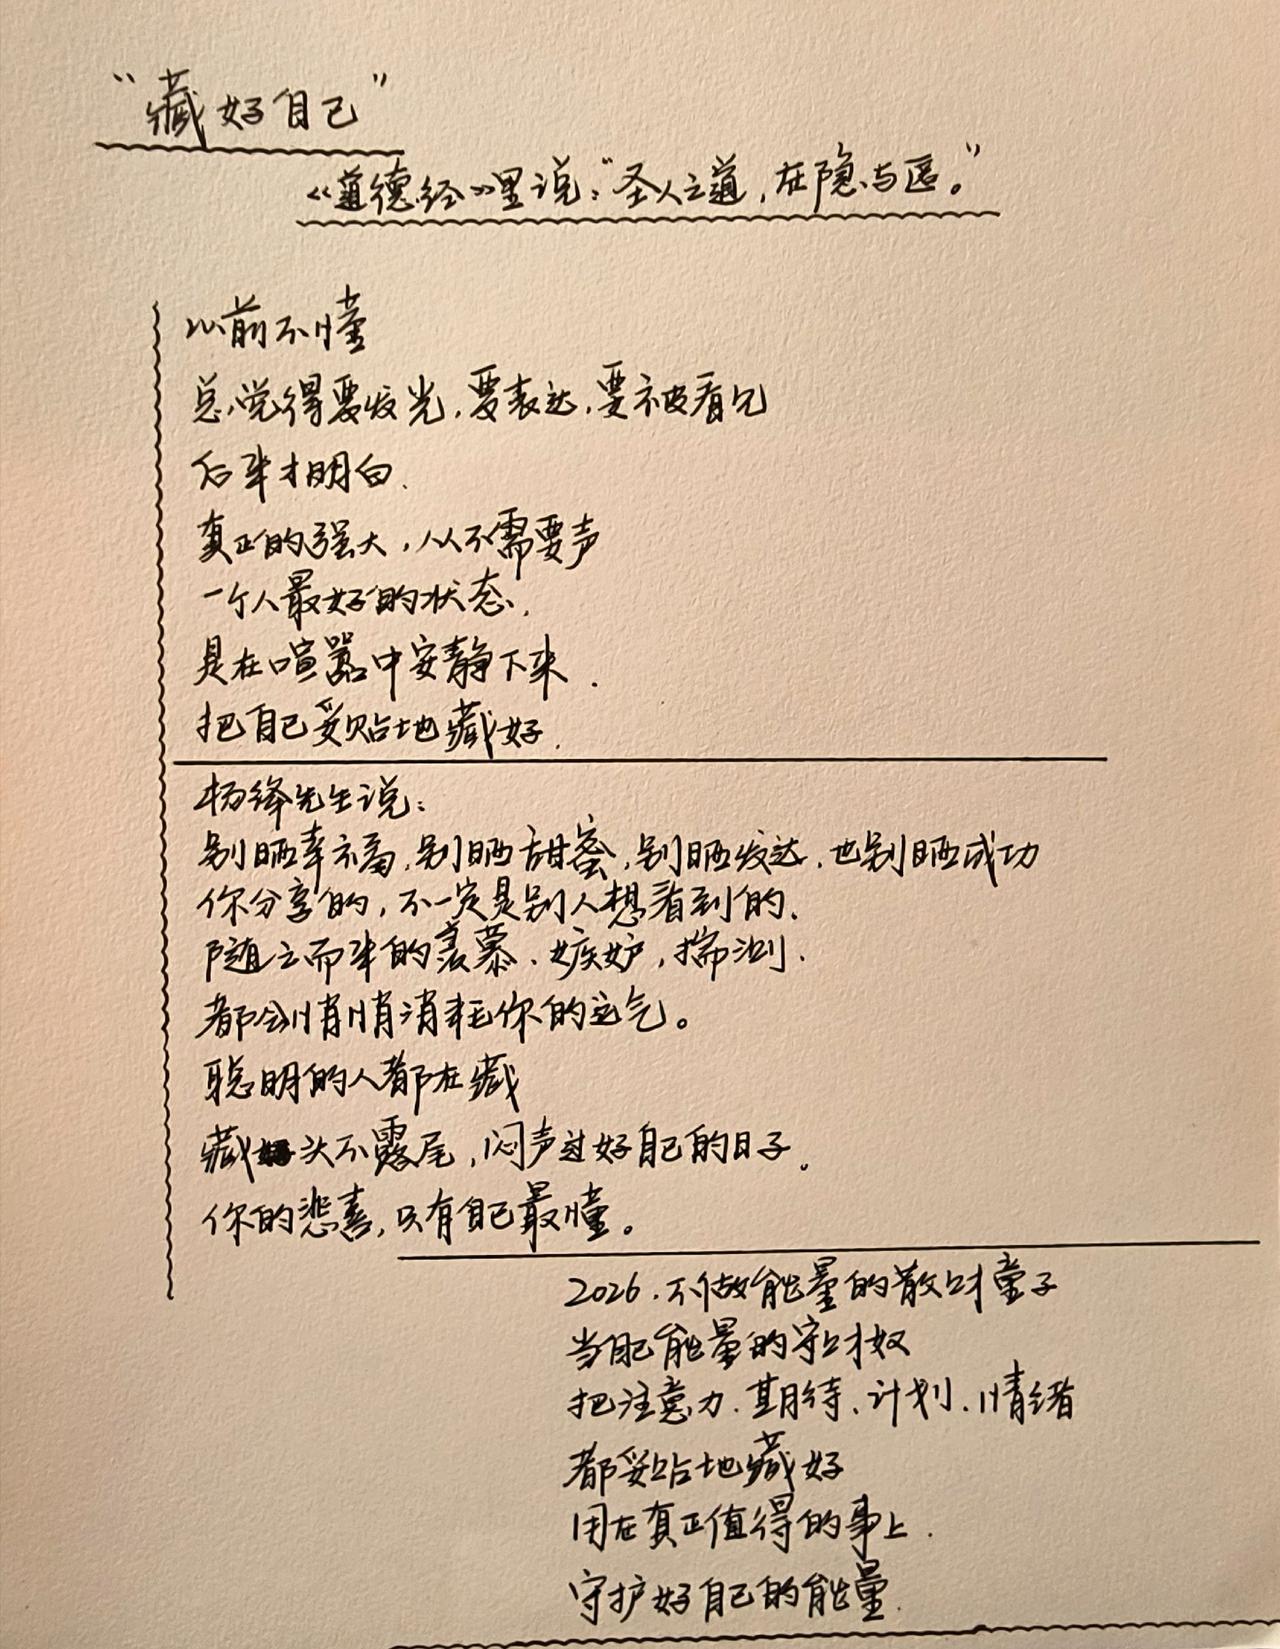 “藏好自己”
《道德经》里说：“圣人之道，在隐与匿。”
以前不懂
总觉得要发光，要表达，要被看见
后来才明白.
真正的强大，从不需要声
一个人最好的状态，
是在喧嚣中安静下来.
把自己妥贴地藏好.
杨绛先生说：
别晒幸福，别晒甜蜜，别晒发达，也别晒成功
你分享的，不一定是别人想看到的.
随之而来的羡慕、嫉妒，揣测.
都会悄悄消耗你的运气。
聪明的人都在藏
藏头不露尾，闷声过好自己的日子。
你的悲喜，只有自己最懂。
2026.不做能量的散财童子
当自己能量的守财奴
把注意力、期待、计划、情绪
都妥贴地藏好
用在真正值得的事上.
守护好自己的能量.